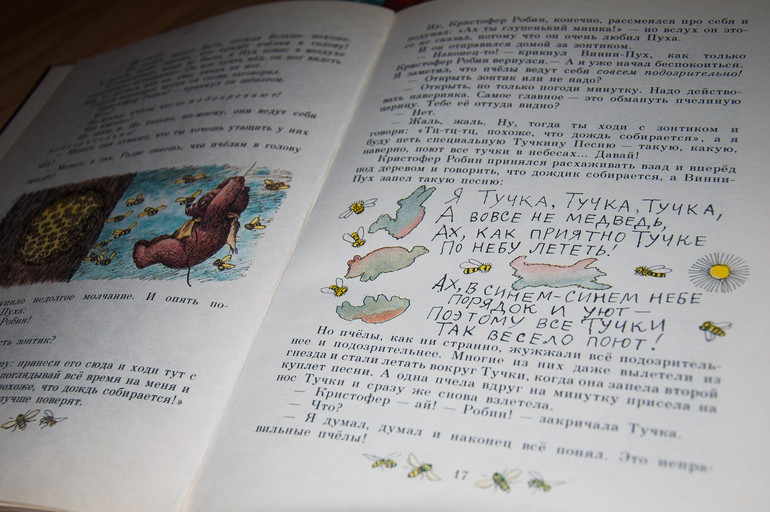 больше похоже,
пчёлам в голову!
подозревают!
по-моему, они ведут себя
думают, что ты хочешь утащить у них
мёд! Может, и так. Разве знаешь, что пчёлам в голову
придёт!
недолгое молчание. И опять по-
Пуха:
Робин!
зонтик?
принеси его сюда и ходи тут с
поглядывай всё время на меня и
похоже, что дождь собирается!»
лучше поверят.
Ну, Кристофер Робин, конечно, рассмеялся про себя и
подумал: «Ах ты глупенький мишка!» — но вслух он это-
го не сказал, потому что он очень любил Пуха.
И он отправился домой за зонтиком.
— Наконец-то! — крикнул Винни-Пух, как только
Кристофер Робин вернулся.— А я уже начал беспокоиться.
Я заметил, что пчёлы ведут себя совсем подозрительно!
— Открыть зонтик или не надо?
— Открыть, но только погоди минутку. Надо действо-
вать наверняка. Самое главное — это обмануть пчелиную
царицу. Тебе её оттуда видно?
— Нет.
— Жаль, жаль. Ну, тогда ты ходи с зонтиком и
говори: «Тц-тц-тц, похоже, что дождь собирается», а я
буду петь специальную Тучкину Песню — такую, какую,
наверно, поют все тучки в небесах... Давай!
Кристофер Робин принялся расхаживать взад и вперёд
под деревом и говорить, что дождик собирается, а Винни-
Пух запел такую песню:
Я ТУЧКА, ТУЧКА, ТУЧКА,
А ВОВСЕ НЕ МЕДВЕДЬ,
АХ, КАК ПРИЯТНО ТУЧКЕ
ПО НЕБУ ЛЕТЕТЬ!
АХ, В СИНЕМ-СИНЕМ НЕБЕ
ПОРЯДОК И УЮТ —
ПОЭТОМУ ВСЕ ТУЧКИ
ТАК ВЕСЕЛО ПОЮТ!
Но пчёлы, как ни странно, жужжали всё подозритель-
нее и подозрительнее. Многие из них даже вылетели из
гнезда и стали летать вокруг Тучки, когда она запела второй
куплет песни. А одна пчела вдруг на минутку присела на
нос Тучки и сразу же снова взлетела.
— Кристофер — ай! — Робин! — закричала Тучка.
— Что?
— Я думал, думал и наконец всё понял. Это непра-
вильные пчёлы!
17